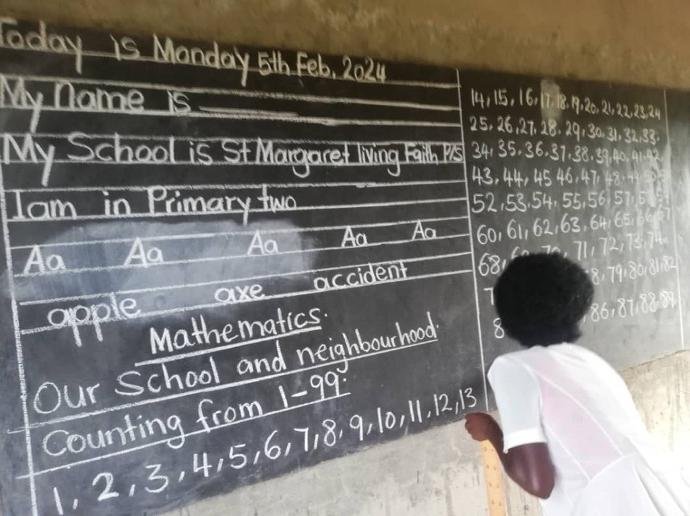 Today is Monday 5th Feb, 2024
My name is
My School is St Margaret living Faith P/S
I am in Primary two
Aa Aa Aa Aa Aa
apple axe accident
Mathematics.
Our School and neighbourhood.
Counting from 1-99.
1, 2, 3, 4, 5, 6, 7, 8, 9, 10, 11, 12, 13
14, 15, 16, 17, 18, 19, 20, 21, 22, 23, 24
25, 26, 27, 28, 29, 30, 31, 32, 33,
34, 35, 36, 37, 38, 39, 40, 41, 42
43, 44, 45 46, 47, 48, 49
52, 53, 54, 55, 56, 57,
60, 61, 62, 63, 64, 65, 66, 67
68, 71, 72, 73, 74
79, 80, 81, 82
86, 87, 88, 89